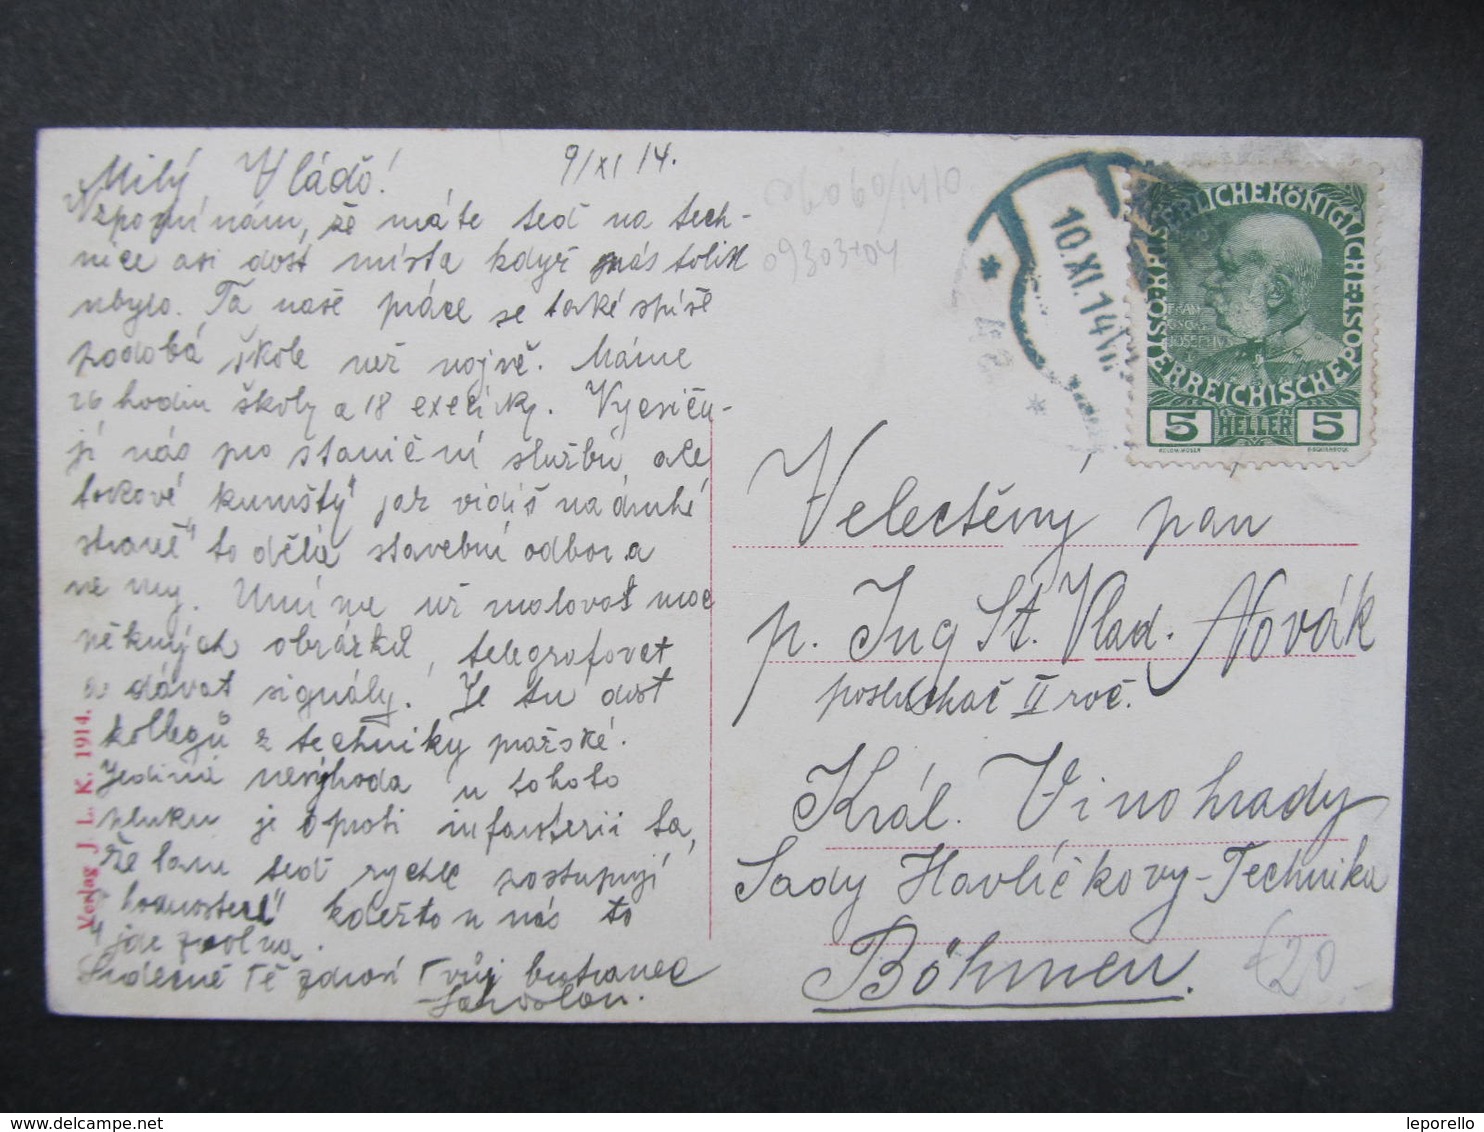 Milý Vládo!
9/XI 14.
Vzpomíná nám, že máte teď na tech-
nice asi dost místa když nás tolik
ubylo. Ta naše práce se také spíše
podobá škole než vojně. Máme
26 hodin školy a 18 execírky. Vycviču-
jí nás pro staniční službu, ale
takové „kumšty" jak vidíš na druhé
straně to dělá stavební odbor a
ne my. Umíme už malovat moc
pěkných obrázků, telegrafovat
a dávat signály. Je tu dost
kollegů z techniky pražské.
Jediná nevýhoda u tohoto
pluku je oproti infanterii ta,
že tam teď rychle postupují
„hodnosteně" kdežto u nás to
jde zvolna.
Srdečně Tě zdraví Tvůj bratranec
Jaroslav.
Verlag J. L. K. 1914.
10.XI.14
KAISERLICHE KÖNIGLICHE POST
OESTERREICHISCHE
FRAN
CISCVS
IOSEPHVS
I
5 HELLER 5
KOLOM.MOSER
F.SCHIRNBÖCK
Velectěný pan
p. Ing St. Vlad. Novák
posluchač II roč.
Král. Vinohrady
Sady Havlíčkovy-Technika
Böhmen.
€20,-
leporello